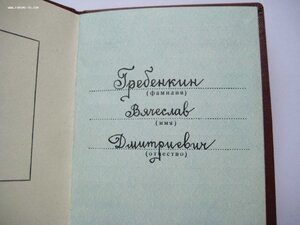 Гребенкин
(фамилия)
Вячеслав
(имя)
Дмитриевич
(отчество)